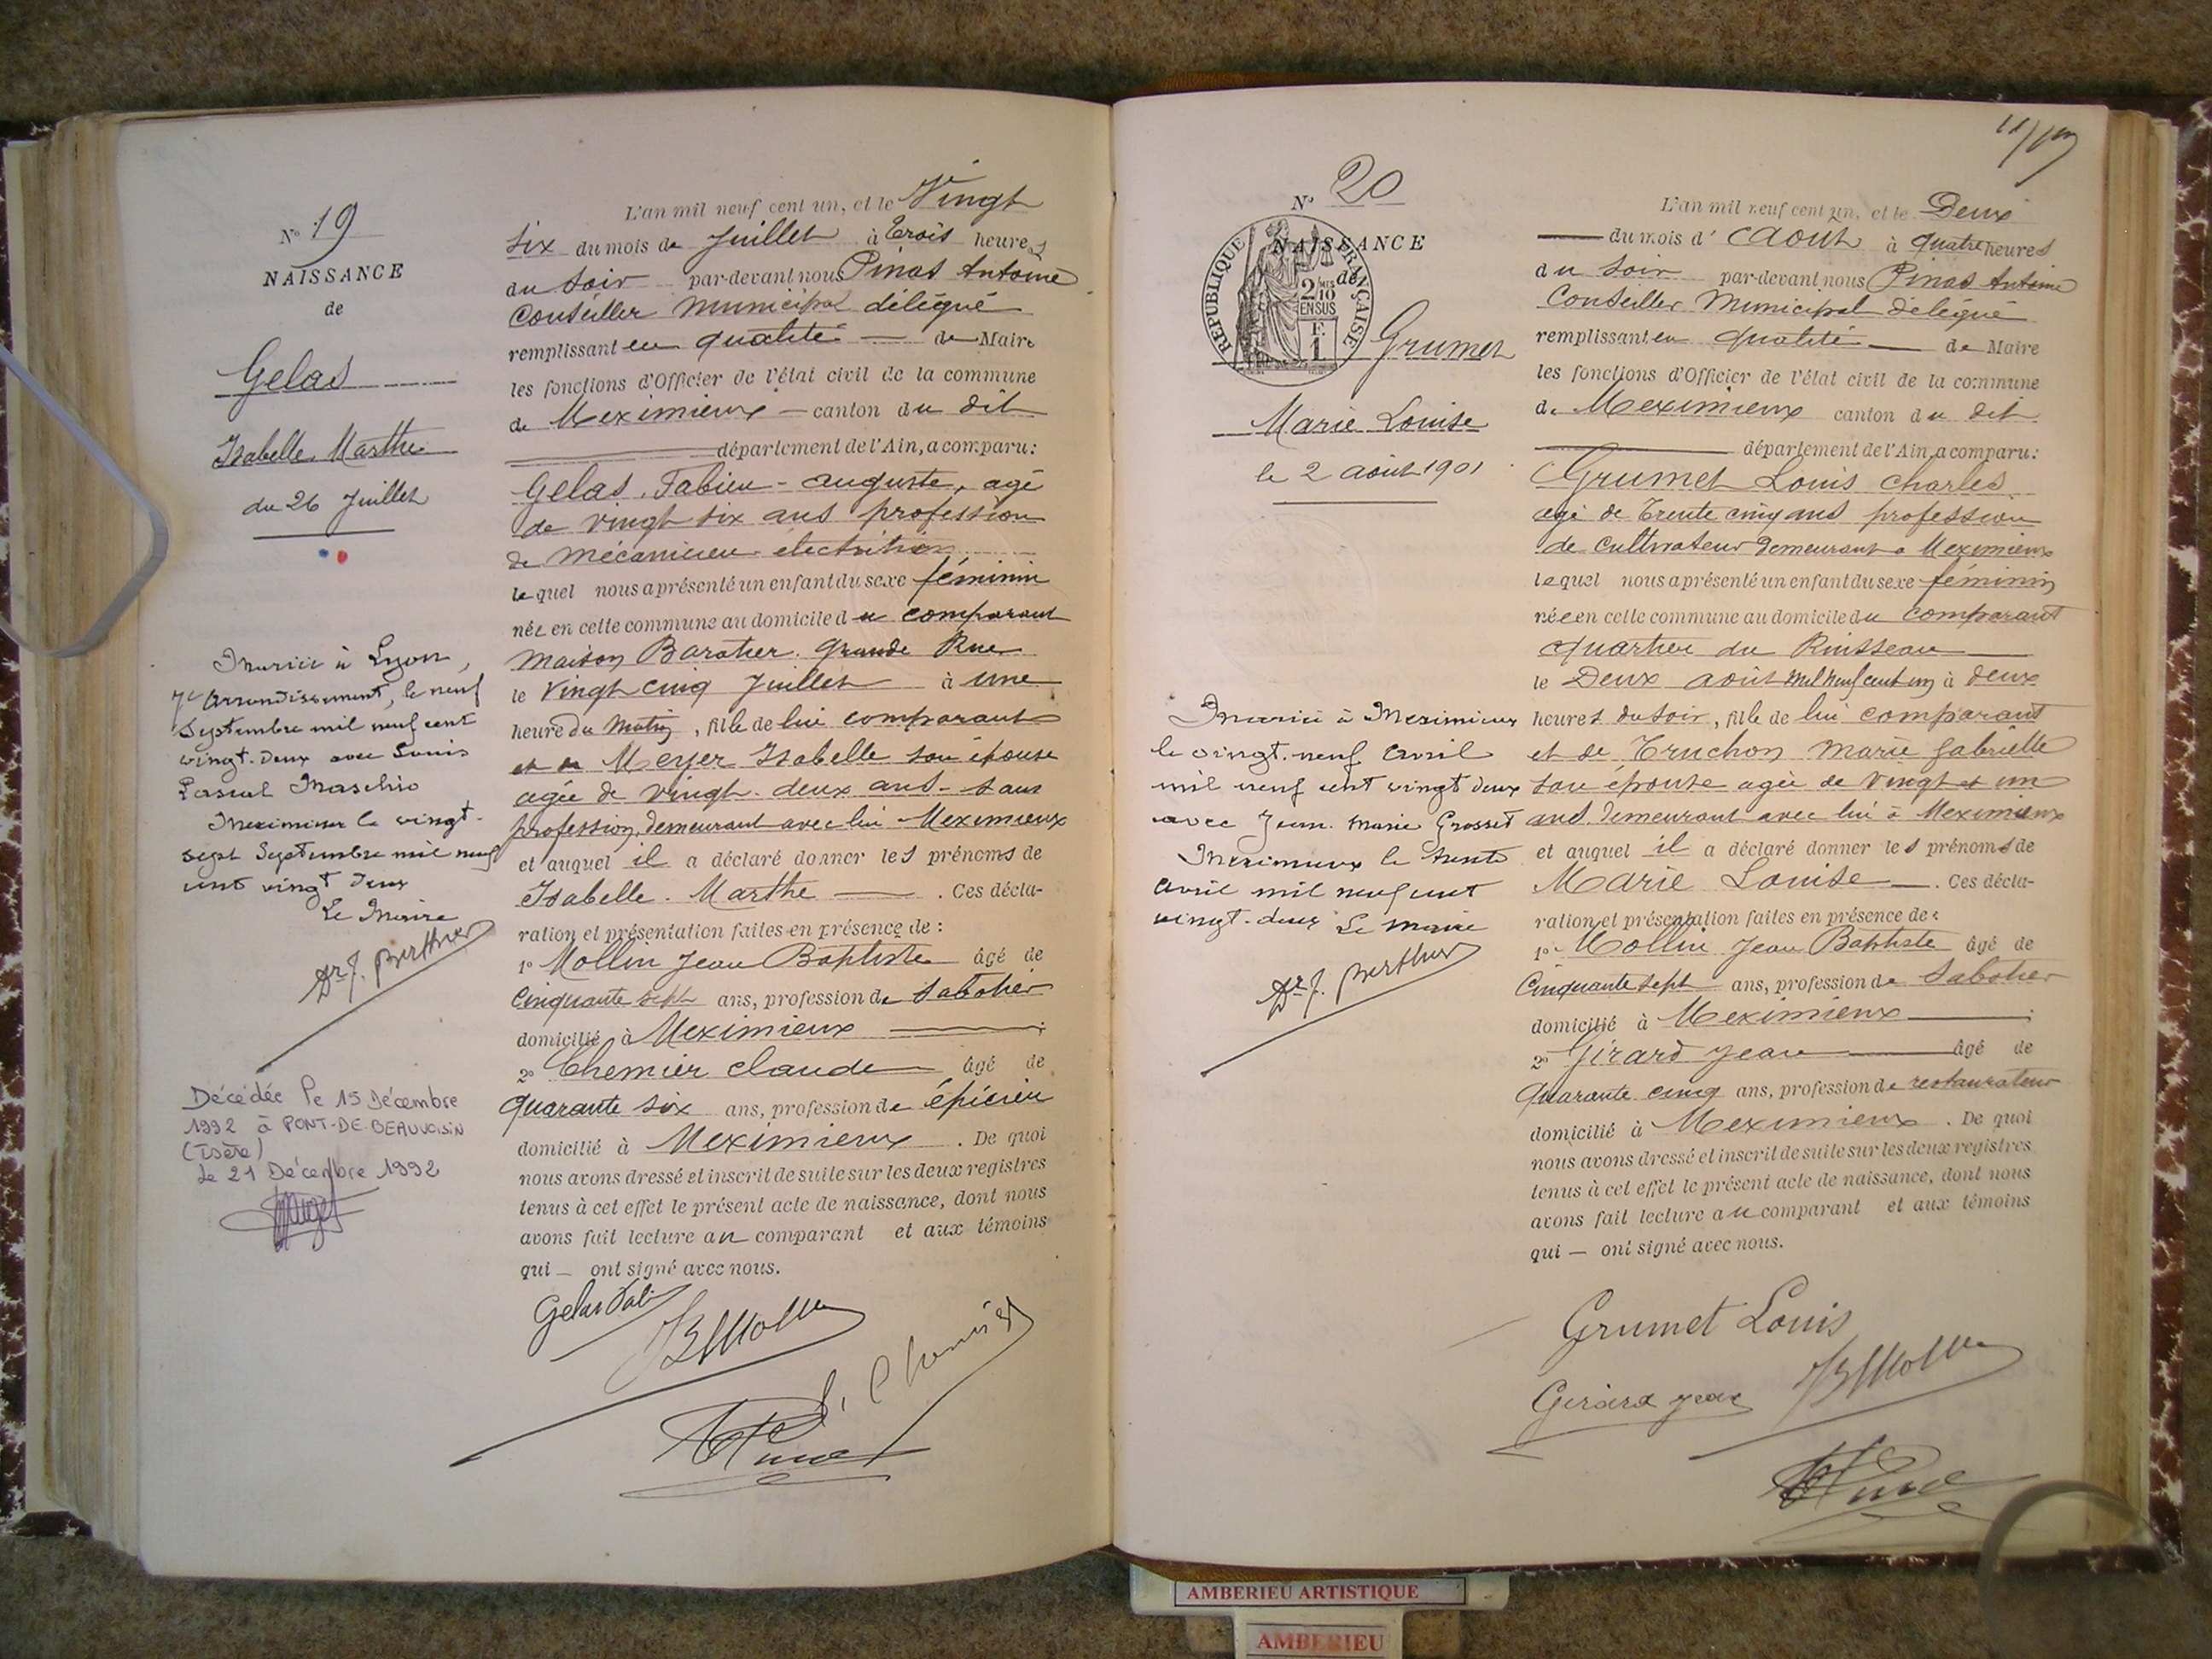 N° 19
NAISSANCE
de
Gelas
Isabelle Marthe
du 26 Juillet
Marié à Lyon,
7e Arrondissement, le neuf
Septembre mil neuf cent
vingt-deux avec Louis
Pascal Maschio
Meximieux le vingt-
sept Septembre mil neuf
cent vingt deux
Le Maire
Dr J. Berthier
Décédée le 15 Décembre
1992 à PONT-DE-BEAUVOISIN
(Isère)
Le 21 Décembre 1992
L'an mil neuf cent un, et le Vingt
six du mois de Juillet à Trois heures
du soir par-devant nous Pinas Antoine
Conseiller Municipal délégué
remplissant en qualité — de Maire
les fonctions d'Officier de l'état civil de la commune
de Meximieux — canton du dit
département de l'Ain, a comparu:
Gelas, Fabien - auguste, agé
de vingt six ans profession
de mécanicien électricien
lequel nous a présenté un enfant du sexe féminin
née en cette commune au domicile du comparant
maison Baratier. Grande Rue
le Vingt cinq Juillet à une
heure du Matin, fille de lui comparant
et de Meyer Isabelle son épouse
agée de vingt-deux ans - sans
profession, demeurant avec lui Meximieux
et auquel il a déclaré donner les prénoms de
Isabelle. Marthe — . Ces décla-
ration et présentation faites en présence de :
1° Mollin Jean Baptiste âgé de
Cinquante sept ans, profession de sabotier
domicilié à Meximieux — ;
2° Chemier Claude âgé de
quarante six ans, profession de épicier
domicilié à Meximieux . De quoi
nous avons dressé et inscrit de suite sur les deux registres
tenus à cet effet le présent acte de naissance, dont nous
avons fait lecture au comparant et aux témoins
qui — ont signé avec nous.
Gelas Fabi
JB Mollin
11/
N° 20
NAISSANCE
de
REPUBLIQUE FRANÇAISE
2 MES 10
EN SUS
F. 1
Grumet
Marie Louise
le 2 août 1901
Marié à Meximieux
le vingt-neuf Avril
mil neuf cent vingt deux
avec Jean-Marie Grosset
Meximieux le trente
Avril mil neuf cent
vingt-deux Le Maire
Dr J. Berthier
L'an mil neuf cent un, et le Deux
— du mois d' Août à quatre heures
du soir par-devant nous Pinas Antoine
Conseiller Municipal délégué
remplissant en qualité — de Maire
les fonctions d'Officier de l'état civil de la commune
de Meximieux canton du dit
département de l'Ain, a comparu:
Grumet Louis Charles
agé de Trente cinq ans profession
de cultivateur Demeurant a Meximieux
lequel nous a présenté un enfant du sexe féminin
née en cette commune au domicile du comparant
quartier du Ruisseau —
le Deux août mil neuf cent un à deux
heures du soir, fille de lui comparant
et de Truchon Marie Gabrielle
son épouse agée de vingt et un
ans. demeurant avec lui à Meximieux
et auquel il a déclaré donner les prénoms de
Marie Louise — . Ces décla-
ration et présentation faites en présence de :
1° Mollin Jean Baptiste âgé de
Cinquante sept ans, profession de Sabotier
domicilié à Meximieux — ;
2° Girard Jean — âgé de
Quarante cinq ans, profession de restaurateur
domicilié à Meximieux . De quoi
nous avons dressé et inscrit de suite sur les deux registres
tenus à cet effet le présent acte de naissance, dont nous
avons fait lecture au comparant et aux témoins
qui — ont signé avec nous.
Grumet Louis
Girard Jean
JB Mollin
AMBERIEU ARTISTIQUE
AMBERIEU